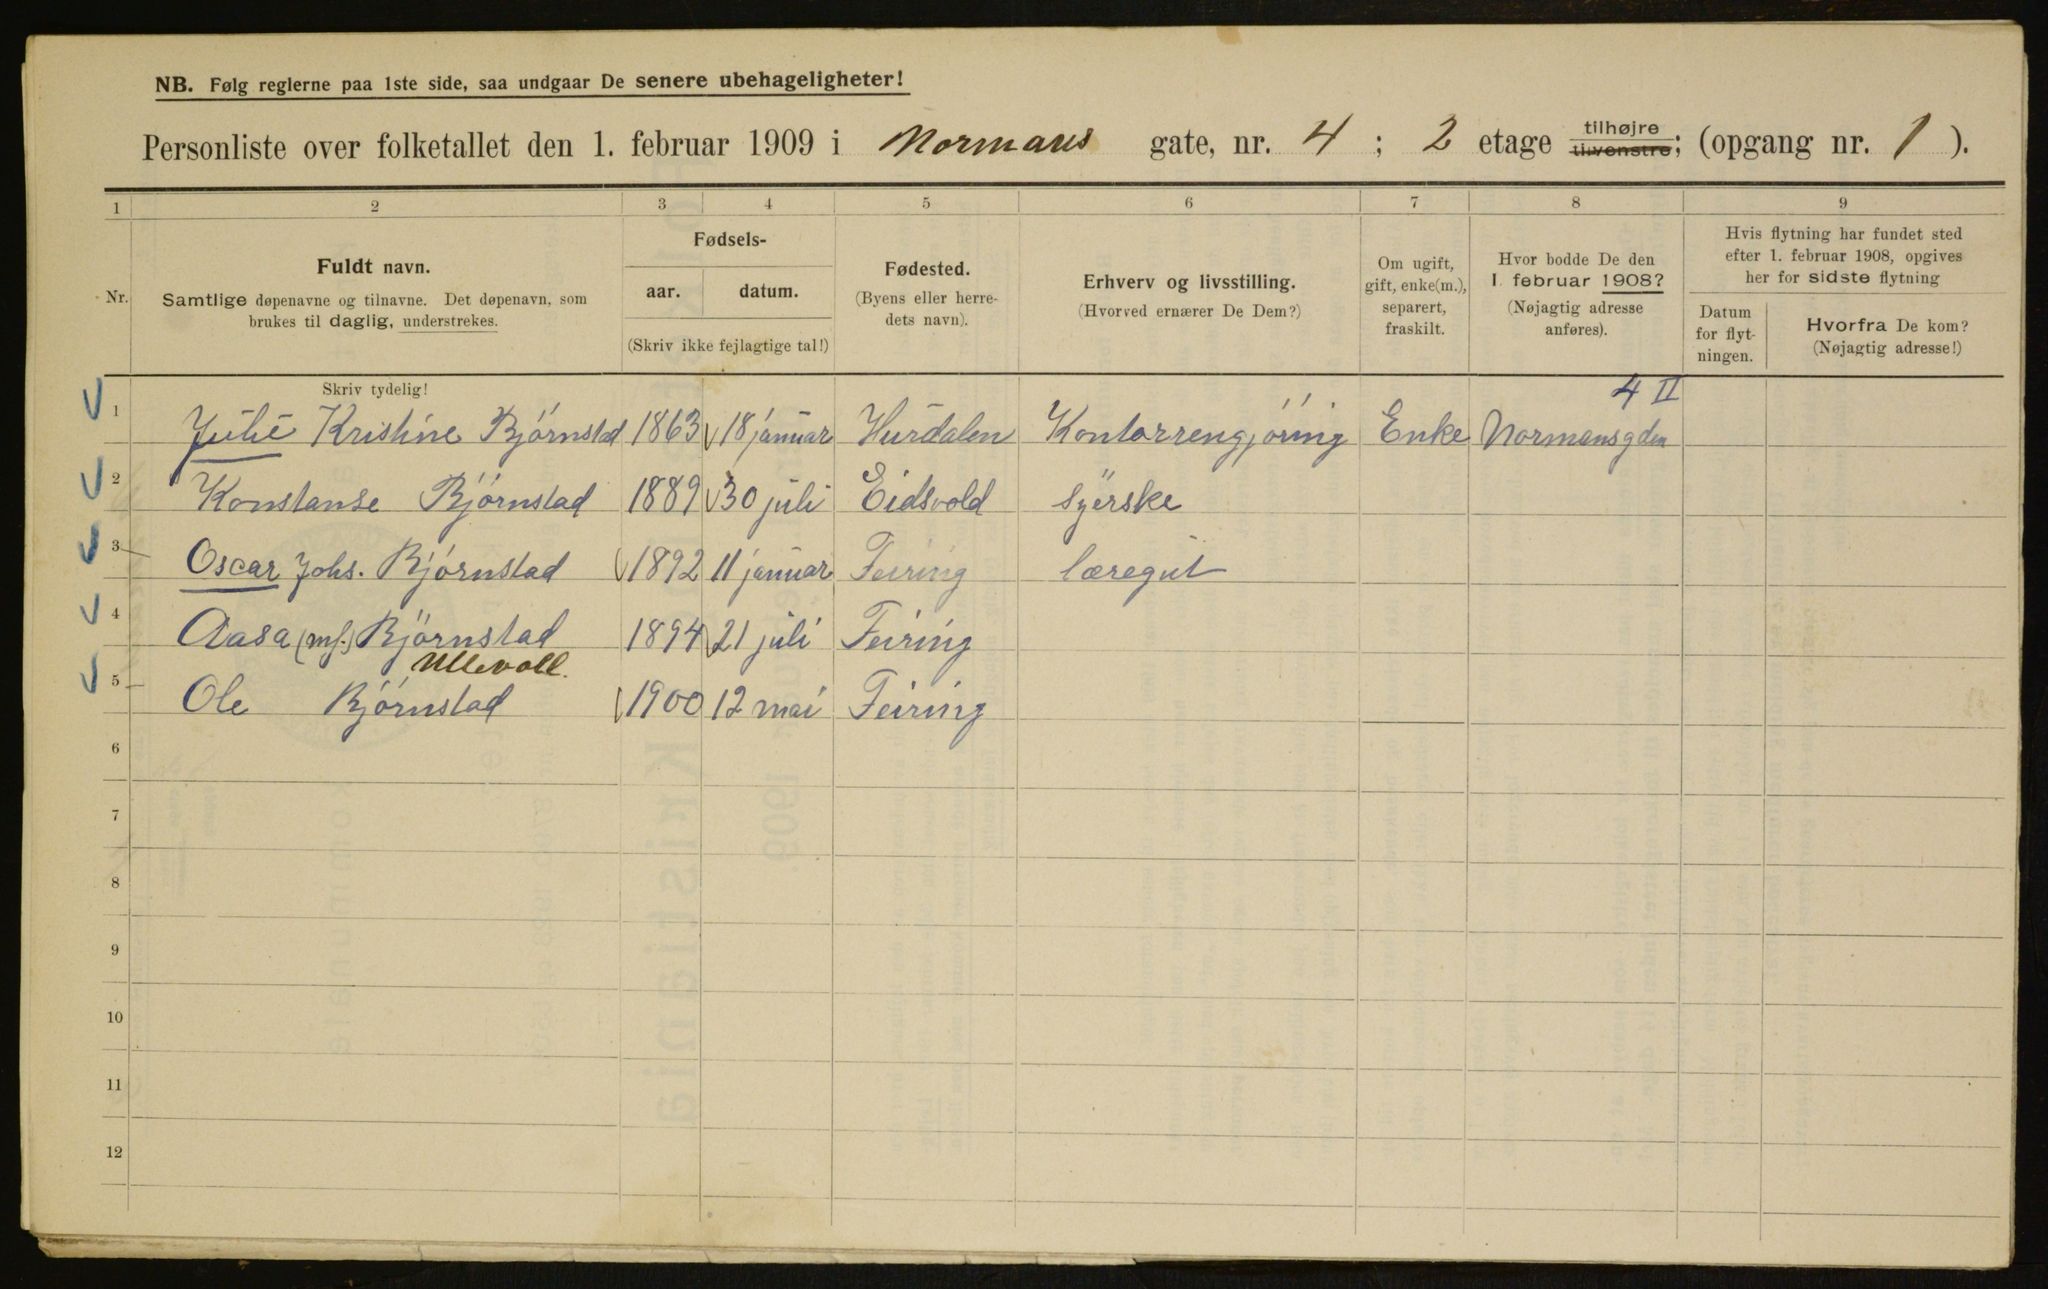 NB. Følg reglerne paa 1ste side, saa undgaar De senere ubehageligheter!
Personliste over folketallet den 1. februar 1909 i Normans gate, nr. 4; 2 etage tilhøjre tilvenstre; (opgang nr. 1).
1 2 3 4 5 6 7 8 9
Nr.
Fuldt navn.
Samtlige døpenavne og tilnavne. Det døpenavn, som
brukes til daglig, understrekes.
Fødsels-
aar. datum.
(Skriv ikke fejlagtige tal!)
Fødested.
(Byens eller herre-
dets navn).
Erhverv og livsstilling.
(Hvorved ernærer De Dem?)
Om ugift,
gift, enke(m.),
separert,
fraskilt.
Hvor bodde De den
1. februar 1908?
(Nøjagtig adresse
anføres).
Hvis flytning har fundet sted
efter 1. februar 1908, opgives
her for sidste flytning
Datum
for flyt-
ningen.
Hvorfra De kom?
(Nøjagtig adresse!)
Skriv tydelig!
4 II
1 Julie Kristine Bjørnstad 1863 18 januar Hurdalen Kontorrengjøring Enke Normansgden
2 Konstanse Bjørnstad 1889 30 juli Eidsvold syerske
3 Oscar Johs. Bjørnstad 1892 11 januar Feiring læregut
4 Aasa (mf.) Bjørnstad 1894 21 juli Feiring
Ullevoll.
5 Ole Bjørnstad 1900 12 mai Feiring
6
7
8
9
10
11
12